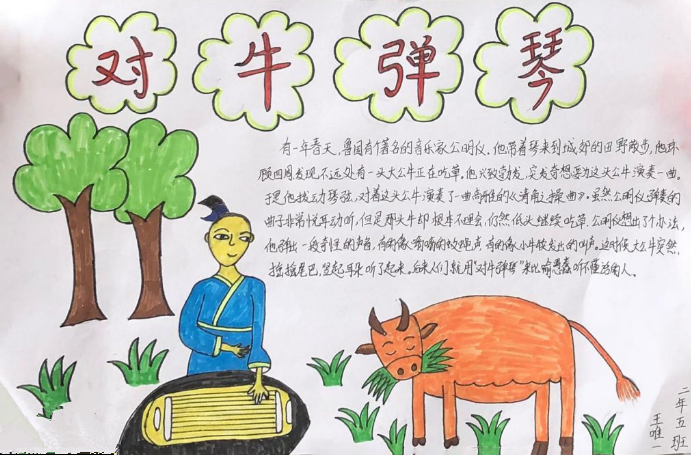 对牛弹琴
有一年春天，鲁国有个著名的音乐家公明仪。他带着琴来到城郊的田野散步，他环
顾四周发现，不远处有一头大公牛正在吃草，他兴致勃发，突发奇想要为这头公牛演奏一曲。
于是他拨动琴弦，对着这头公牛演奏了一曲高雅的《清角之操曲》。虽然公明仪弹奏的
曲子非常悦耳动听，但是那头牛却根本不理会，仍然低头继续吃草。公明仪想出了个办法，
他弹出一段奇怪的声音，有的像嗡嗡的蚊蝇声，有的像小牛犊发出的叫声。这时候大公牛突然，
摇摇尾巴，竖起耳朵听了起来。后来人们就用“对牛弹琴”来比喻愚蠢听不懂的人。
二年五班
王唯一